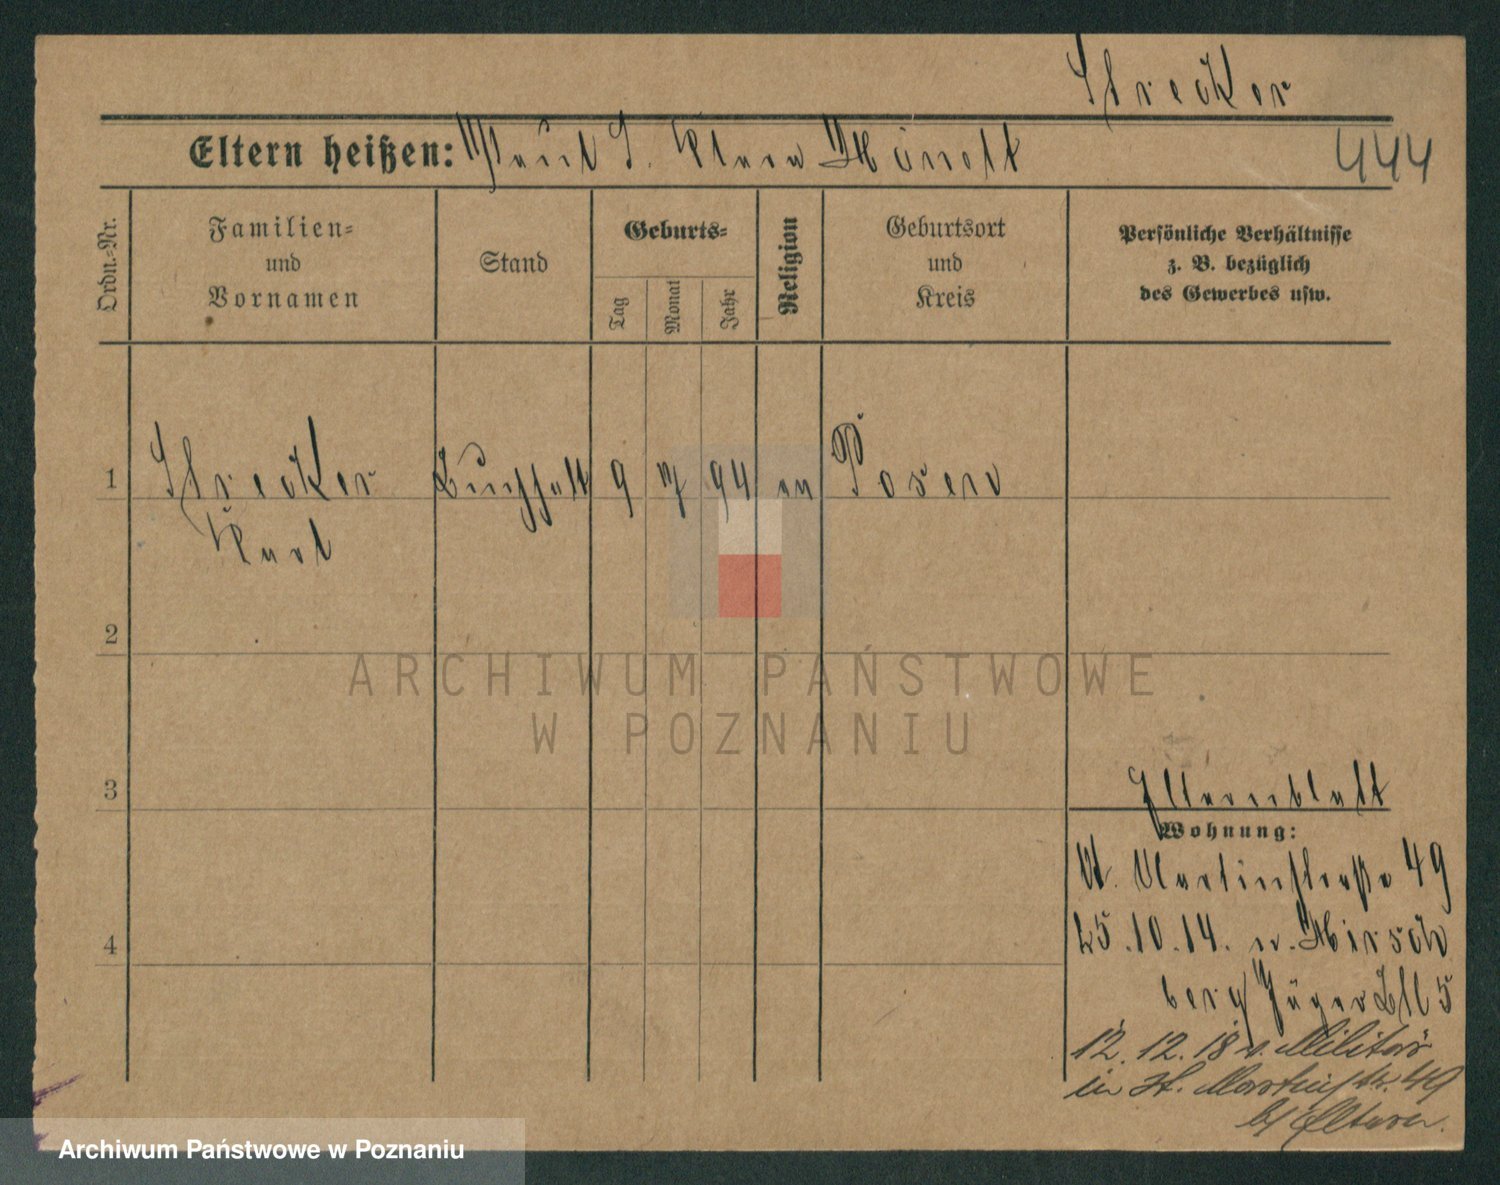 Strecker
Eltern heißen: Paul S. Klara Händtt
444
Ordn.-Nr.
Familien-
und
Vornamen
Stand
Geburts-
Tag
Monat
Jahr
Religion
Geburtsort
und
Kreis
Persönliche Verhältnisse
z. B. bezüglich
des Gewerbes usw.
1 Strecker Buchhalt 9 7 94 ev Posen
Kurt
2
ARCHIWUM PAŃSTWOWE
W POZNANIU
3
Elternblatt
Wohnung:
St. Martinstraße 49
25.10.14. n. Hirsch
berg Jäger Btl 5
4
12.12.18 v. Militär
in St. Martinstr. 49
b/ Eltern.
Archiwum Państwowe w Poznaniu